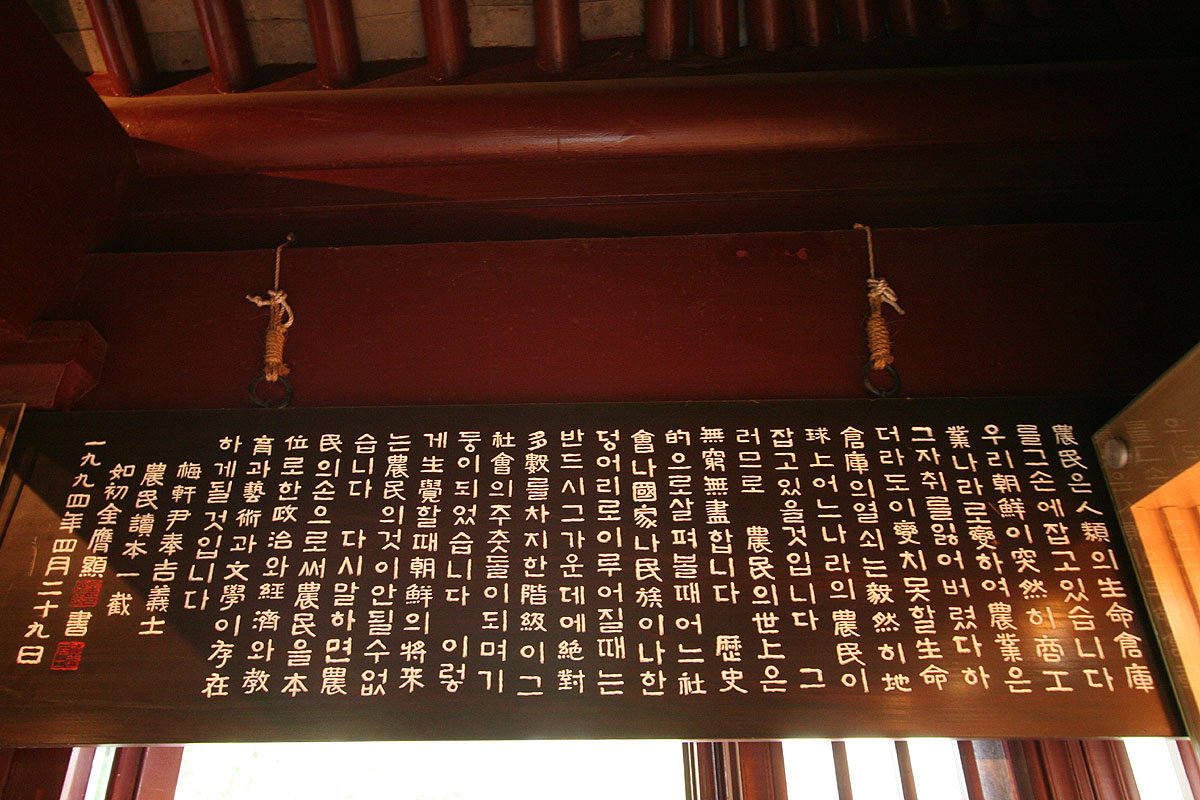 農民은人類의生命倉庫
를그손에잡고있습니다
우리朝鮮이突然히商工
業나라로變하여農業은
그자취를잃어버렸다하
더라도이變치못할生命
倉庫의열쇠는毅然히地
球上어느나라의農民이
잡고있을것입니다 그
러므로 農民의世上은
無窮無盡합니다 歷史
的으로살펴볼때어느社
會나國家나民族이나한
덩어리로이루어질때는
반드시그가운데에絶對
多數를차지한階級이그
社會의주춧돌이되며기
둥이되었습니다 이렇
게生覺할때朝鮮의將来
는農民의것이안될수없
습니다 다시말하면農
民의손으로써農民을本
位로한政治와経濟와敎
育과藝術과文學이存在
하게될것입니다
梅軒尹奉吉義士
農民讀本一截
如初全鷹顯書
一九九四年四月二十九日